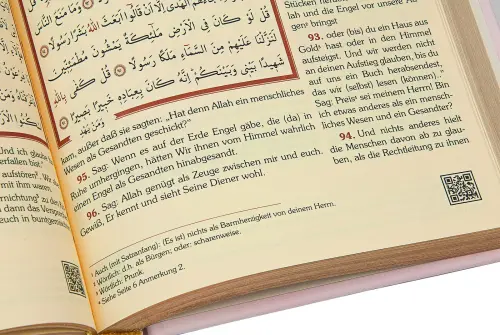 وَمَا مَنَعَ النَّاسَ
الْهُدٰى اِلَّا اَنْ قَالُوا اَبَعَثَ اللّٰهُ بَشَرًا رَسُولًا
قُلْ لَوْ كَانَ فِي الْاَرْضِ مَلٰٓئِكَةٌ يَمْشُونَ مُطْمَئِنّٖينَ
لَنَزَّلْنَا عَلَيْهِمْ مِنَ السَّمَاءِ مَلَكًا رَسُولًا قُلْ كَفٰى بِاللّٰهِ
شَهٖيدًا بَيْنٖي وَبَيْنَكُمْ اِنَّهُ كَانَ بِعِبَادِهٖ خَبٖيرًا بَصٖيرًا
وَمَنْ يَهْدِ
kam, außer daß sie sagten: „Hat denn Allah ein menschliches
Wesen als Gesandten geschickt?"
95. Sag: Wenn es auf der Erde Engel gäbe, die (da) in
Ruhe umhergingen, hätten Wir ihnen vom Himmel wahrlich
einen Engel als Gesandten hinabgesandt.
96. Sag: Allah genügt als Zeuge zwischen mir und euch.
Gewiß, Er kennt und sieht Seine Diener wohl.
¹ Auch (mit Satzanfang): (Es ist) nichts als Barmherzigkeit von deinem Herrn.
² Wörtlich: d.h. als Bürgen; oder: scharenweise.
³ Wörtlich: Prunk.
⁴ Siehe Seite 6 Anmerkung 2.
Stücken
lah und die Engel vor unsere
gen bringst;
93. oder (bis) du ein Haus aus
Gold³ hast oder in den Himmel
aufsteigst. Und wir werden nicht
an deinen Aufstieg glauben, bis du
auf uns ein Buch herabsendest,
das wir (selbst) lesen (können)."
Sag: Preis⁴ sei meinem Herrn! Bin
ich etwas anderes als ein mensch-
liches Wesen und ein Gesandter?
94. Und nichts anderes hielt
die Menschen davon ab zu glau-
ben, als die Rechtleitung zu ihnen